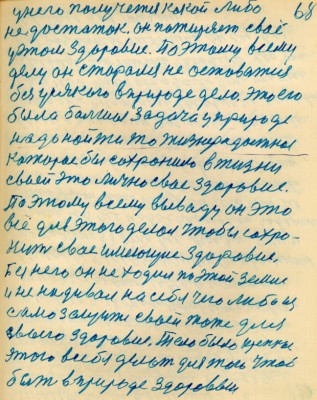 у него получется какой либо 68
не достаток, он потиряет своё
у этом здоровие. Поэтому всему
делу он старался не остоватся
без усякого в природе дело. Это его
была большая задача у природе
надо найти то жизнерадостное
каторае бы сохронило в жизни
своей это лично свае здоровие.
Поэтому всему вываду он это
всё для этого делал чтобы сохро-
нить свае имеющие здоровие.
Без него он не ходил по этой земле
и не надивал на себя чего либо из
само защиты своей тоже для
своего здоровие. Тело было крепкае
этого все себя делат для того чтоб
быть в природе здоровыи